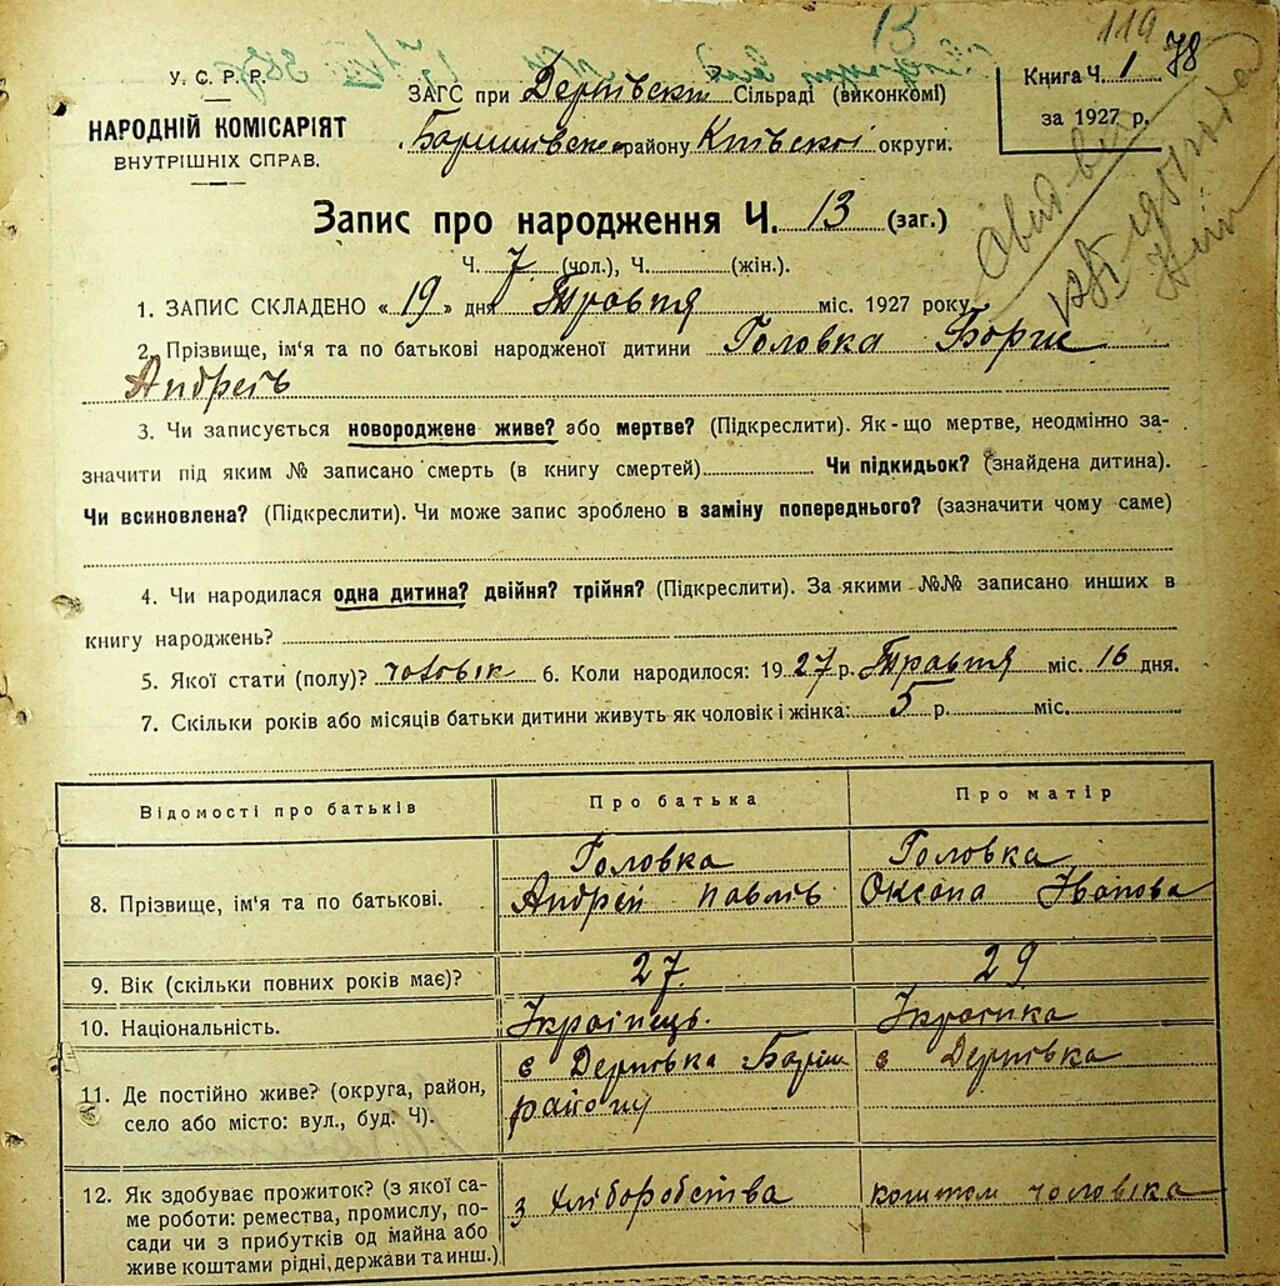 119
13
78
У. С. Р. Р.
НАРОДНІЙ КОМІСАРІЯТ
ВНУТРІШНІХ СПРАВ.
ЗАГС при Дернівскій Сільраді (виконкомі)
Баришівського району Київскої округи.
Книга Ч. 1
за 1927 р.
Запис про народження Ч. 13 (заг.)
Ч. 7 (чол.), Ч. (жін.).
1. ЗАПИС СКЛАДЕНО « 19 » дня Травня міс. 1927 року
2. Прізвище, ім'я та по батькові народженої дитини Головка Борис
Андреїв
3. Чи записується новороджене живе? або мертве? (Підкреслити). Як-що мертве, неодмінно за-
значити під яким № записано смерть (в книгу смертей) Чи підкидьок? (знайдена дитина).
Чи всиновлена? (Підкреслити). Чи може запис зроблено в заміну попереднього? (зазначити чому саме)
4. Чи народилася одна дитина? двійня? трійня? (Підкреслити). За якими №№ записано инших в
книгу народжень?
5. Якої стати (полу)? чоловік 6. Коли народилося: 1927 р. Травня міс. 16 дня.
7. Скільки років або місяців батьки дитини живуть як чоловік і жінка: 5 р. міс.
Відомості про батьків Про батька Про матір
8. Прізвище, ім'я та по батькові. Головка Андрей Павлів Головка Оксана Іванова
9. Вік (скільки повних років має)? 27 29
10. Національність. Українець. Українка
11. Де постійно живе? (округа, район,
село або місто: вул., буд. Ч). с Дернівка Бориш району с Дернівка
12. Як здобуває прожиток? (з якої са-
ме роботи: ремества, промислу, по-
сади чи з прибутків од майна або
живе коштами рідні, держави та инш.) з хліборобства коштом чоловіка